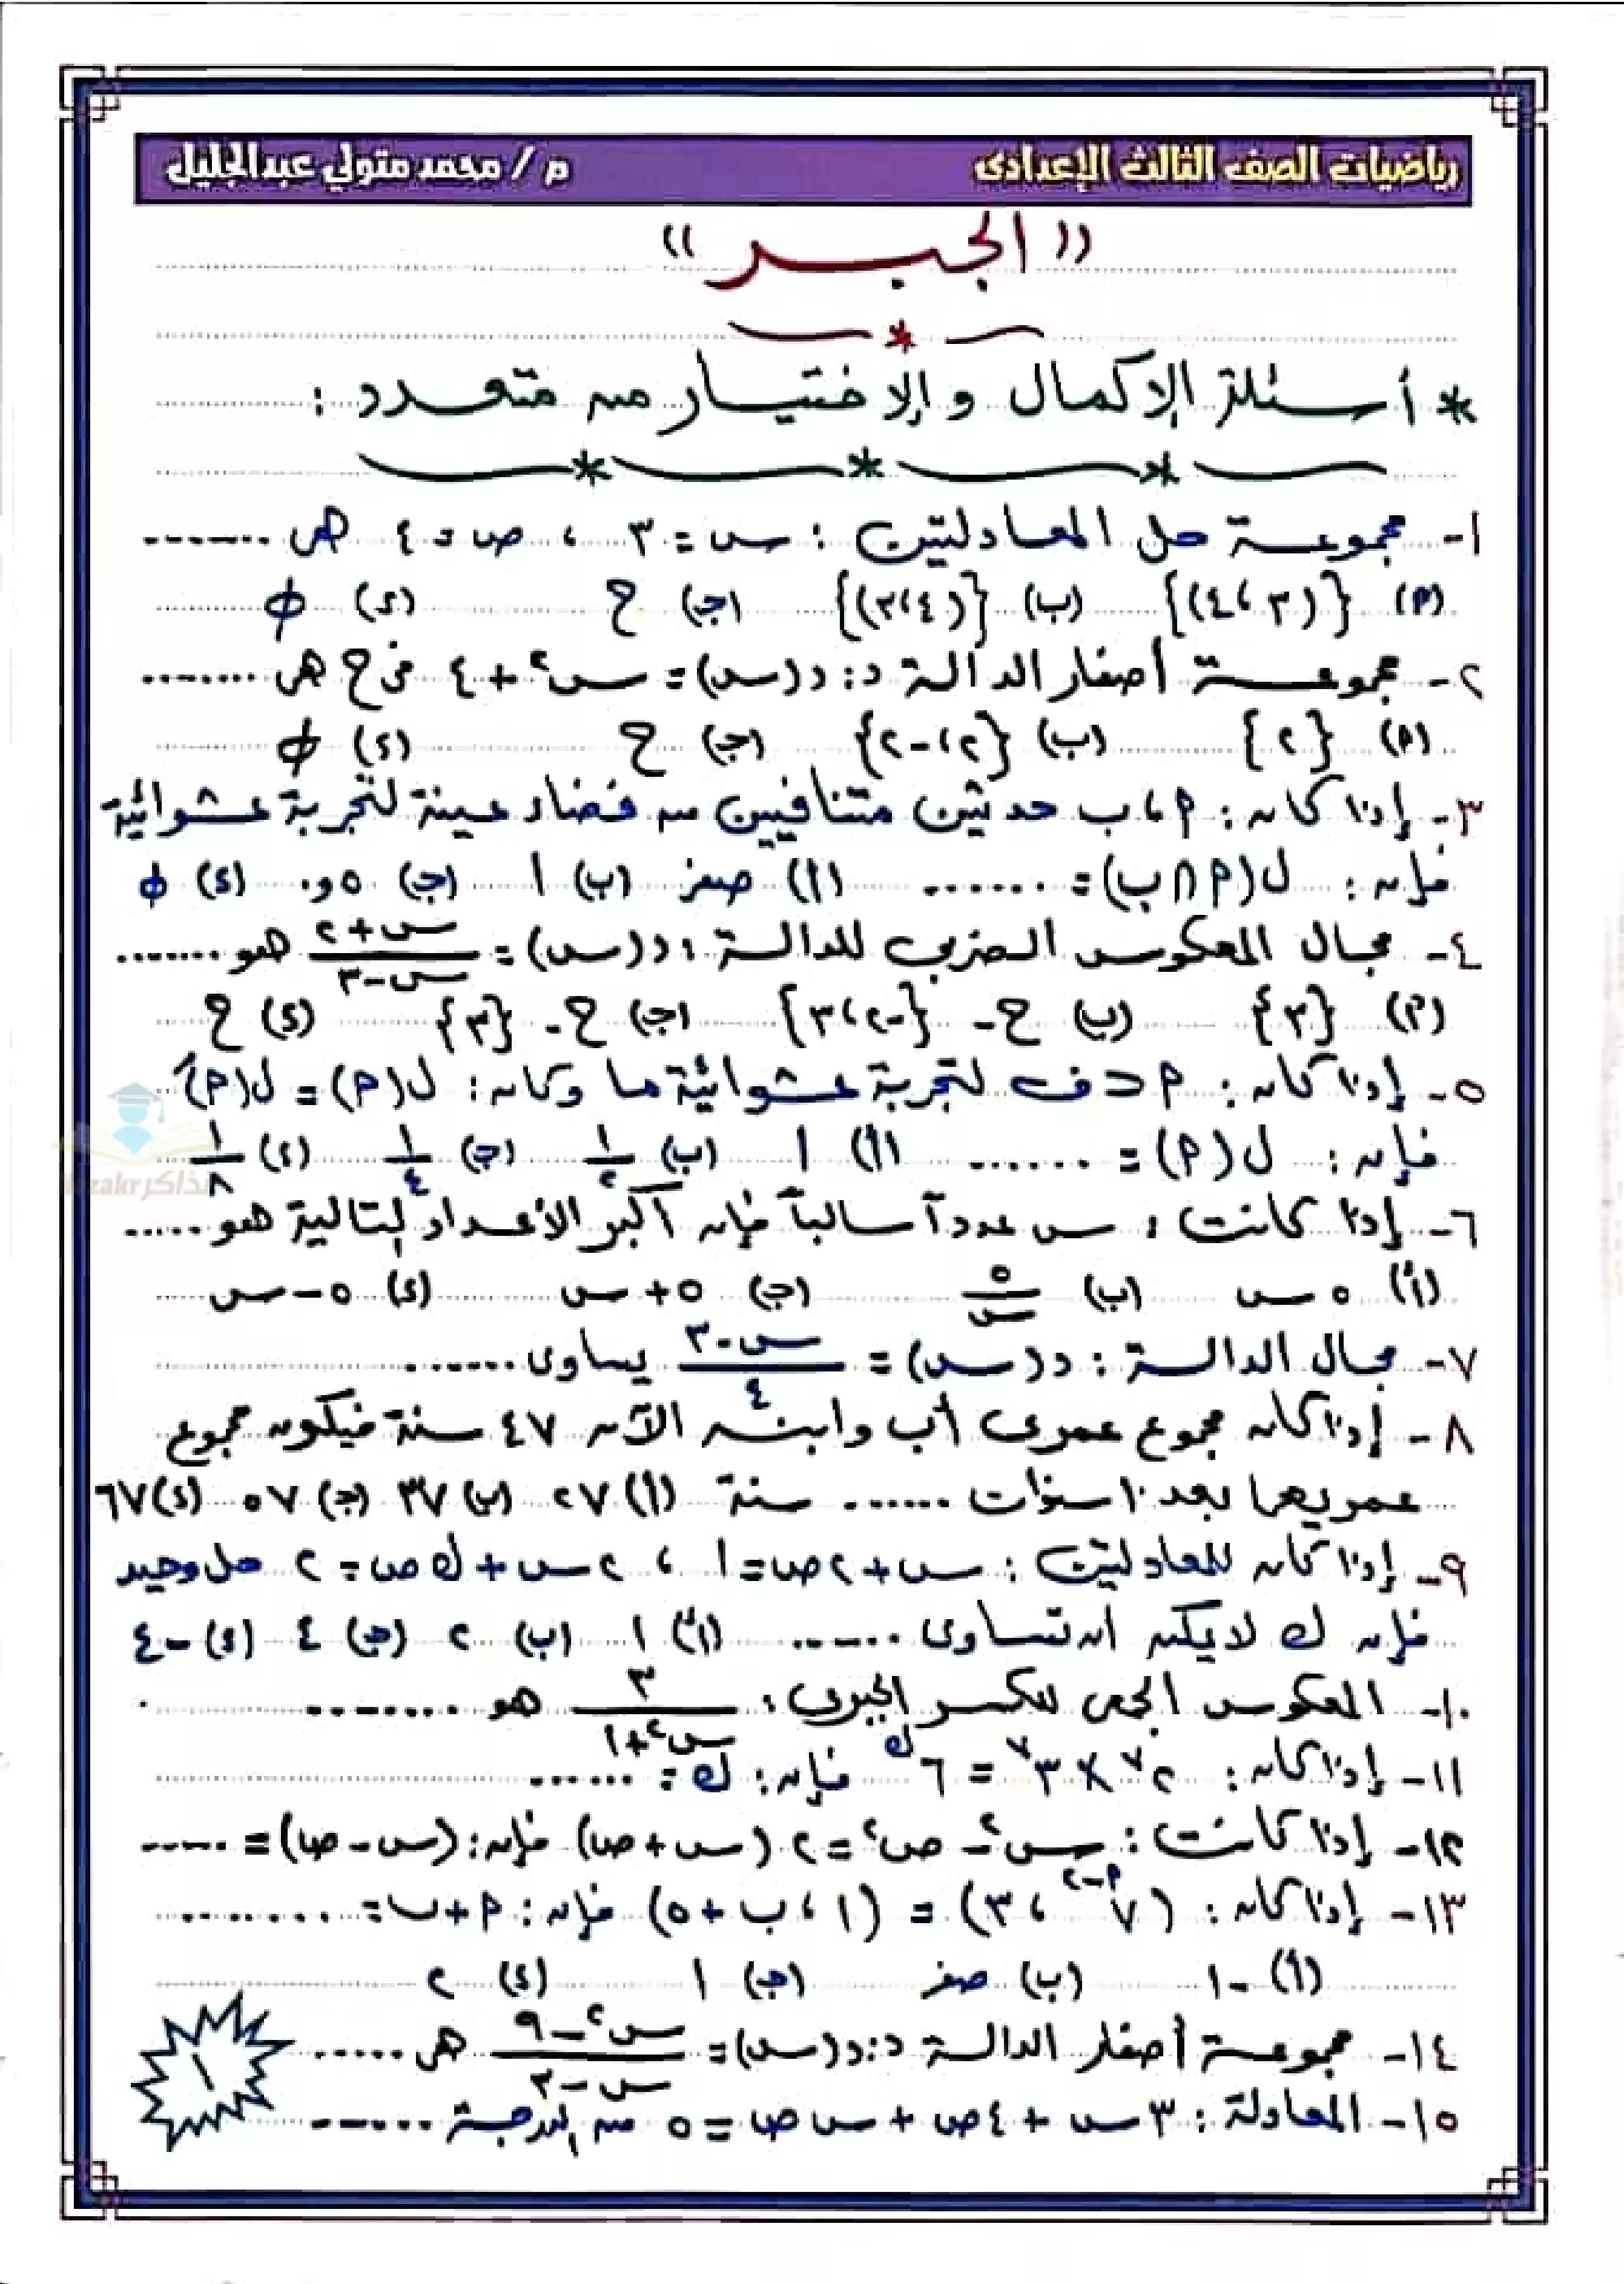 رياضيات الصف الثالث الإعدادى م / محمد متولي عبدالجليل
(( الجبـــر ))
* أسئلة الإكمال و الإختيار من متعدد :
١- مجموعة حل المعادلتين : س = ٣ ، ص = ٤ هى .......
(٢) {(٣ ، ٤)} (ب) {(٤ ، ٣)} (جـ) ح (د) ϕ
٢- مجموعة أصفار الدالة د : د(س) = س² + ٤ فى ح هى .......
(٢) {٢} (ب) {٢ ، -٢} (جـ) ح (د) ϕ
٣- إذا كان : ٢ ، ب حدثين متنافيين من فضاء عينة لتجربة عشوائية
فإن : ل(٢ ∩ ب) = ....... (أ) صفر (ب) ١ (جـ) ٥و٠ (د) ϕ
٤- مجال المعكوس الضربى للدالة : د(س) = (س + ٢)/(س - ٣) هو .......
(٢) {٣} (ب) ح - {-٢ ، ٣} (جـ) ح - {٣} (د) ح
٥- إذا كان : ٢ ⊂ ف لتجربة عشوائية ما وكان : ل(٢) = ل(٢َ)
فإن : ل(٢) = ....... (أ) ١ (ب) ١/٢ (جـ) ١/٤ (د) ١/٨
٦- إذا كانت : س عدداً سالباً فإن أكبر الأعداد التالية هو .....
(أ) ٥ س (ب) ٥/س (جـ) ٥ + س (د) ٥ - س
٧- مجال الدالة : د(س) = (س - ٣)/٤ يساوى .......
٨- إذا كان مجموع عمرى أب وابنه الآن ٤٧ سنة فيكون مجموع
عمريهما بعد ١٠ سنوات ...... سنة (أ) ٢٧ (ب) ٣٧ (جـ) ٥٧ (د) ٦٧
٩- إذا كان للمعادلتين : س + ٢ص = ١ ، ٢س + ك ص = ٢ حل وحيد
فإن ك لا يمكن أن تساوى ...... (أ) ١ (ب) ٢ (جـ) ٤ (د) -٤
١٠- المعكوس الجمعى للكسر الجبرى : ٣/(س² + ١) هو ........
١١- إذا كان : ٢⁷ × ٣⁷ = ٦ᵏ فإن : ك = ......
١٢- إذا كانت : س² - ص² = ٢ (س + ص) فإن : (س - ص) = .....
١٣- إذا كان : (٧^(٢-٢) ، ٣) = (١ ، ب + ٥) فإن : ٢ + ب = ........
(أ) -١ (ب) صفر (جـ) ١ (د) ٢
١٤- مجموعة أصفار الدالة د : د(س) = (س² - ٩)/(س - ٣) هى .....
١٥- المعادلة : ٣س + ٤ص + س ص = ٥ من الدرجة ......
١